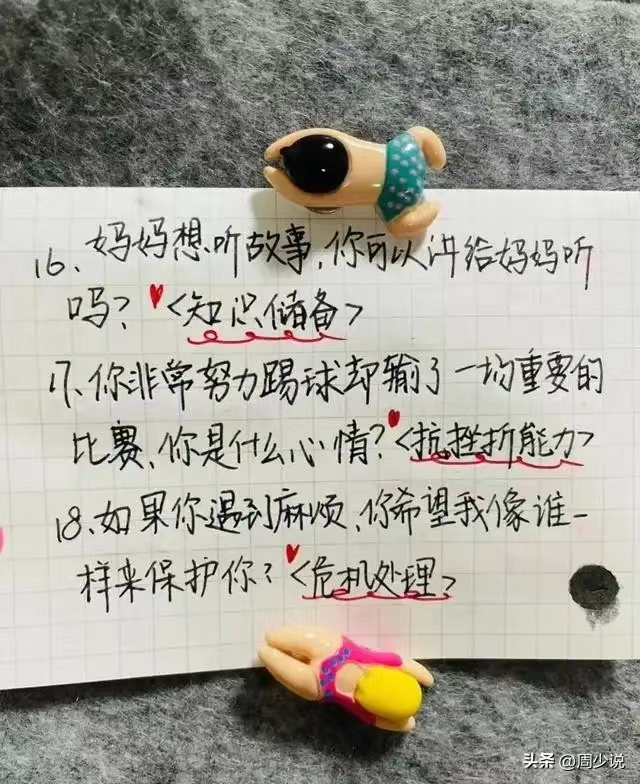 16、妈妈想听故事,你可以讲给妈妈听
吗?<知识储备>
17、你非常努力踢球却输了一场重要的
比赛、你是什么心情?<抗挫折能力>
18、如果你遇到麻烦、你希望我像谁一
样来保护你?<危机处理>
头条 @周少说